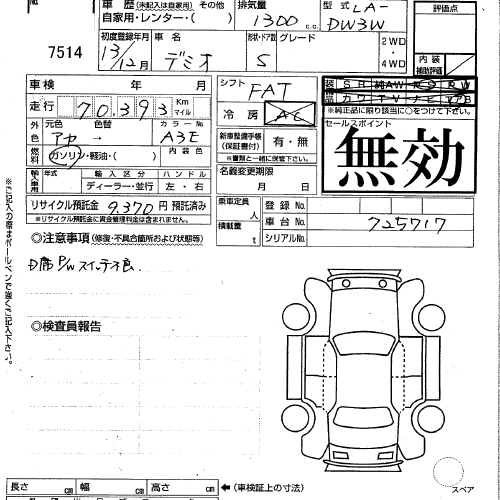 車歴 (未記入は自家用) その他
自家用・レンター・( )
排気量 1300 c.c.
型式 LA-
DW3W
評価点
7514
初度登録年月
13/12月
車名
デミオ
形状・ドア数
5
グレード
2WD
・
4WD
内装
補助評価
車検 年 月
シフト FAT
走行 70,393 Km マイル
冷房 AC
※純正品に限り該当に○をつけて下さい。
セールスポイント
無効
外色 元色 色替 カラーNo.
アカ → A3E
燃料 ガソリン・軽油・( ) 内装色
新車整備手帳
(保証書付)
有・無
※書類と一緒に保管下さい。
輸入車用 年式 モデル ハンドル
ディーラー・並行 左・右
名義変更期限
月 日
リサイクル預託金 9,370円 預託済み
※リサイクル預託金に資金管理料金は含まれません。
乗車定員 人
積載量 t
登録No.
車台No. 725717
シリアルNo.
◎注意事項 (修復・不具合箇所および状態等)
D席 P/W スイッチ不良.
※ご記入の際はボールペンで強くご記入下さい。
◎検査員報告
長さ cm 幅 cm 高さ cm ←(車検証上の寸法)
スペア